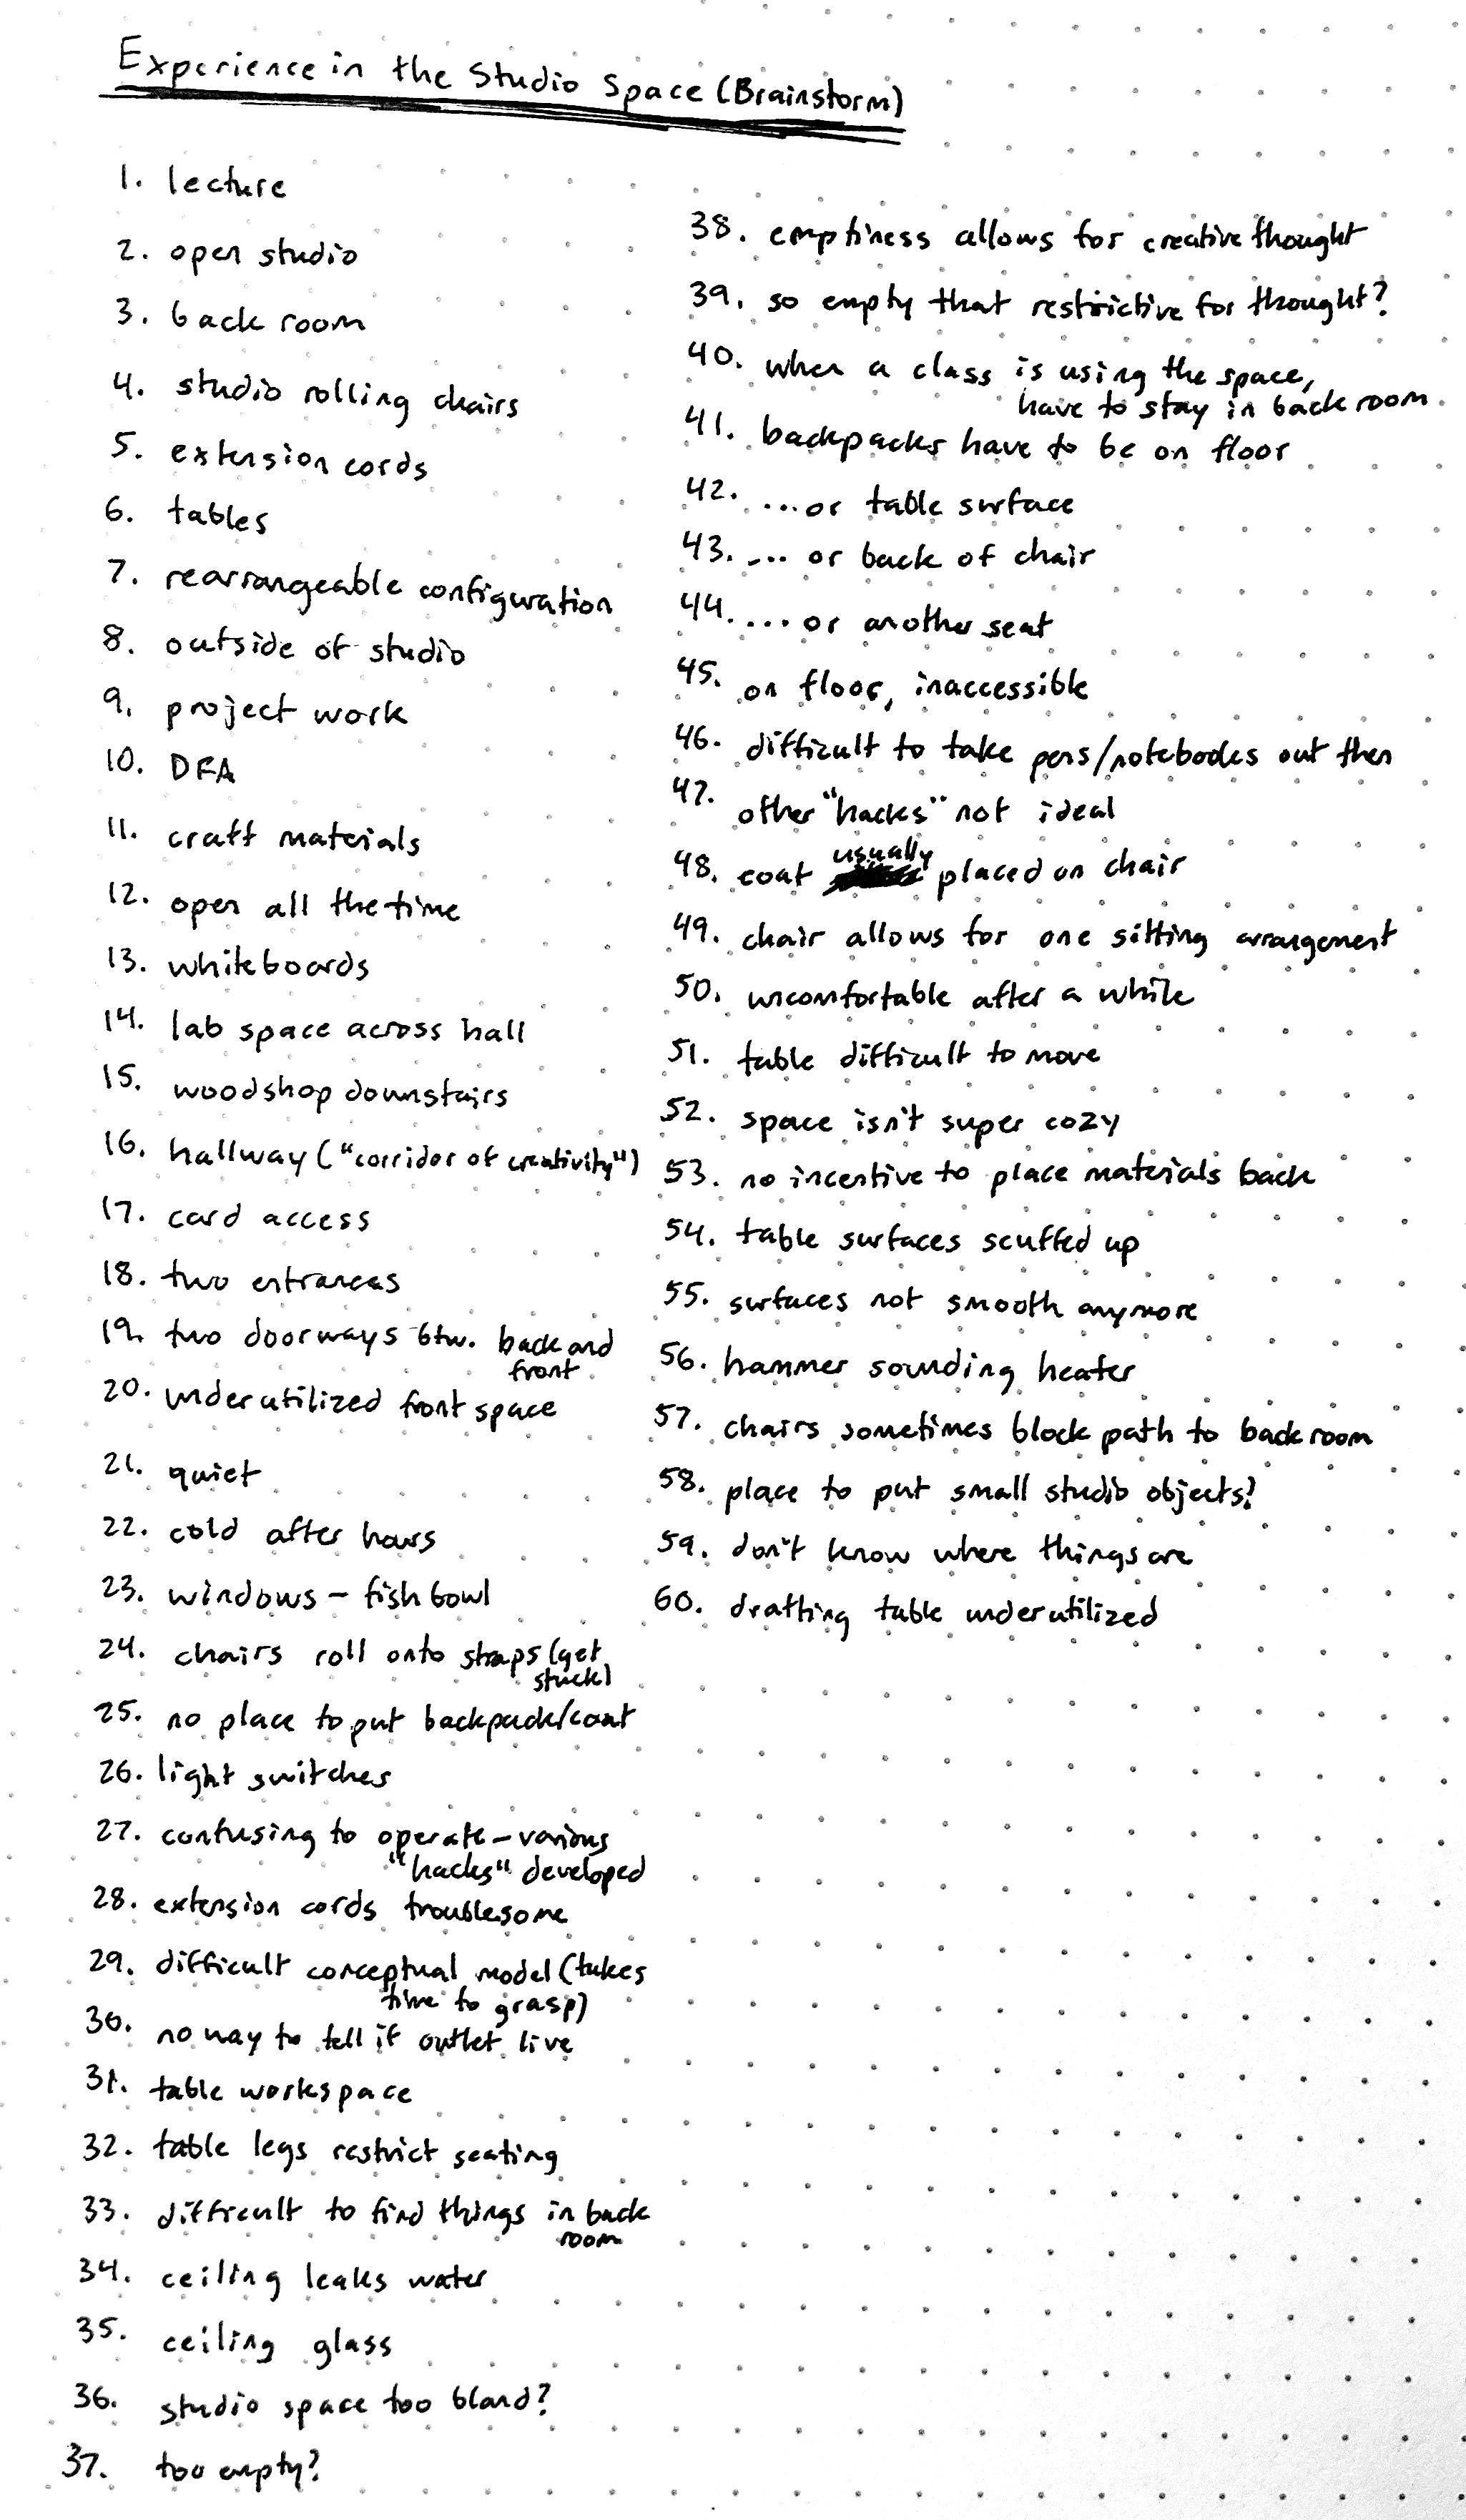 Experience in the Studio Space (Brainstorm)
1. lecture
2. open studio
3. back room
4. studio rolling chairs
5. extension cords
6. tables
7. rearrangeable configuration
8. outside of studio
9. project work
10. DFA
11. craft materials
12. open all the time
13. whiteboards
14. lab space across hall
15. woodshop downstairs
16. hallway ("corridor of creativity")
17. card access
18. two entrances
19. two doorways btw. back and
front
20. underutilized front space
21. quiet
22. cold after hours
23. windows - fishbowl
24. chairs roll onto straps (get
stuck)
25. no place to put backpack/coat
26. light switches
27. confusing to operate - various
"hacks" developed
28. extension cords troublesome
29. difficult conceptual model (takes
time to grasp)
30. no way to tell if outlet live
31. table workspace
32. table legs restrict seating
33. difficult to find things in back
room
34. ceiling leaks water
35. ceiling glass
36. studio space too bland?
37. too empty?
38. emptiness allows for creative thought
39. so empty that restrictive for thought?
40. when a class is using the space,
have to stay in back room.
41. backpacks have to be on floor
42. ...or table surface
43. ... or back of chair
44. ... or another seat
45. on floor, inaccessible
46. difficult to take pens/notebooks out then
47. other "hacks" not ideal
48. coat usually placed on chair
49. chair allows for one sitting arrangement
50. uncomfortable after a while
51. table difficult to move
52. space isn't super cozy
53. no incentive to place materials back
54. table surfaces scuffed up
55. surfaces not smooth anymore
56. hammer sounding heater
57. chairs sometimes block path to back room
58. place to put small studio objects?
59. don't know where things are
60. drafting table underutilized